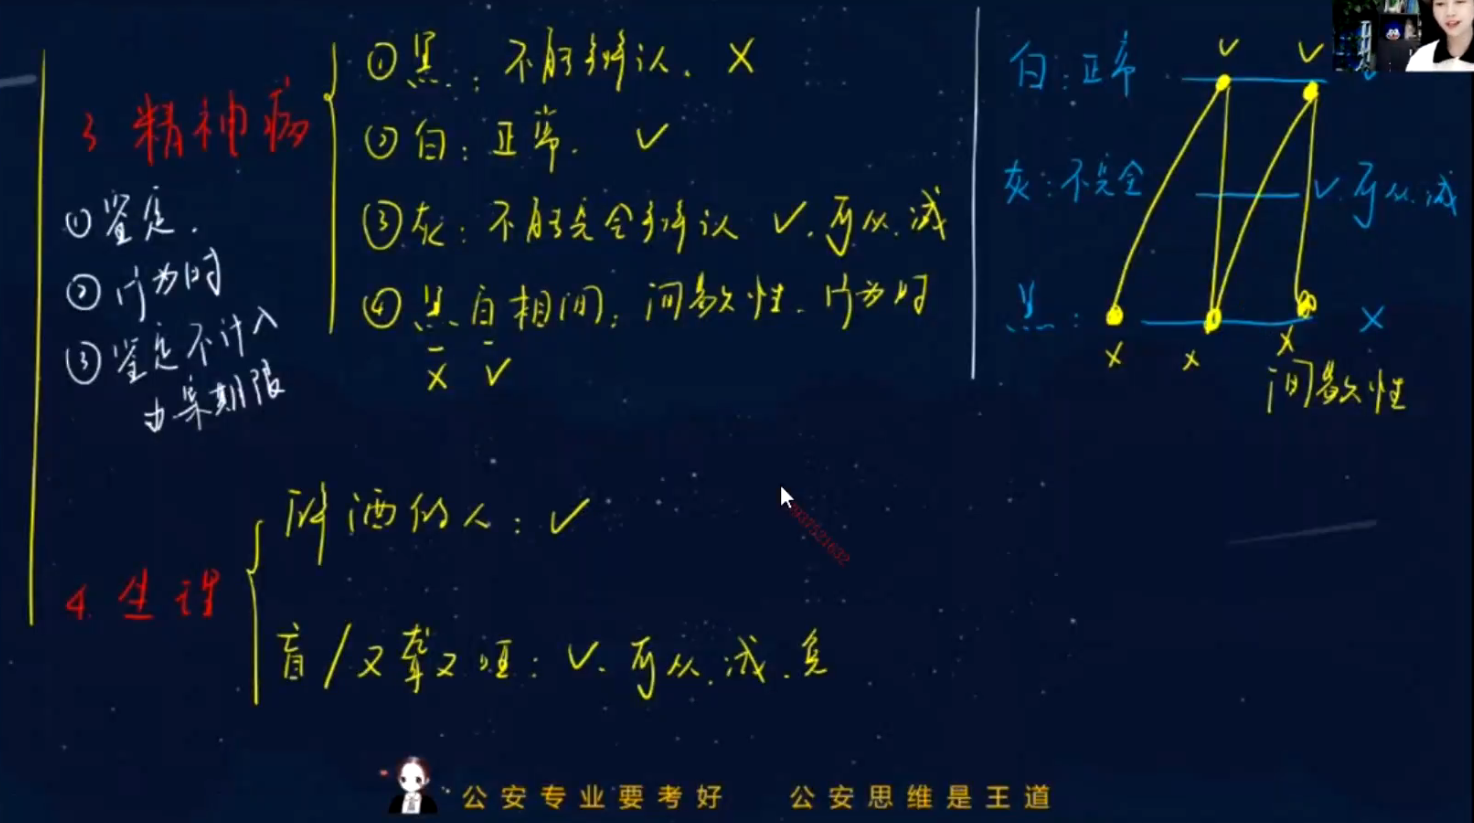 3 精神病
①鉴定.
②行为时
③鉴定不计入
办案期限
①黑:不能辨认. X
②白:正常. ✓
③灰:不能完全辨认 ✓.可从.减
④黑白相间:间歇性.行为时
X ✓
白:正常
✓ ✓
灰:不完全 ✓.可从.减
黑: X
X X X
间歇性
4 生理
醉酒的人:✓
盲/又聋又哑:✓.可从.减.免
公安专业要考好 公安思维是王道